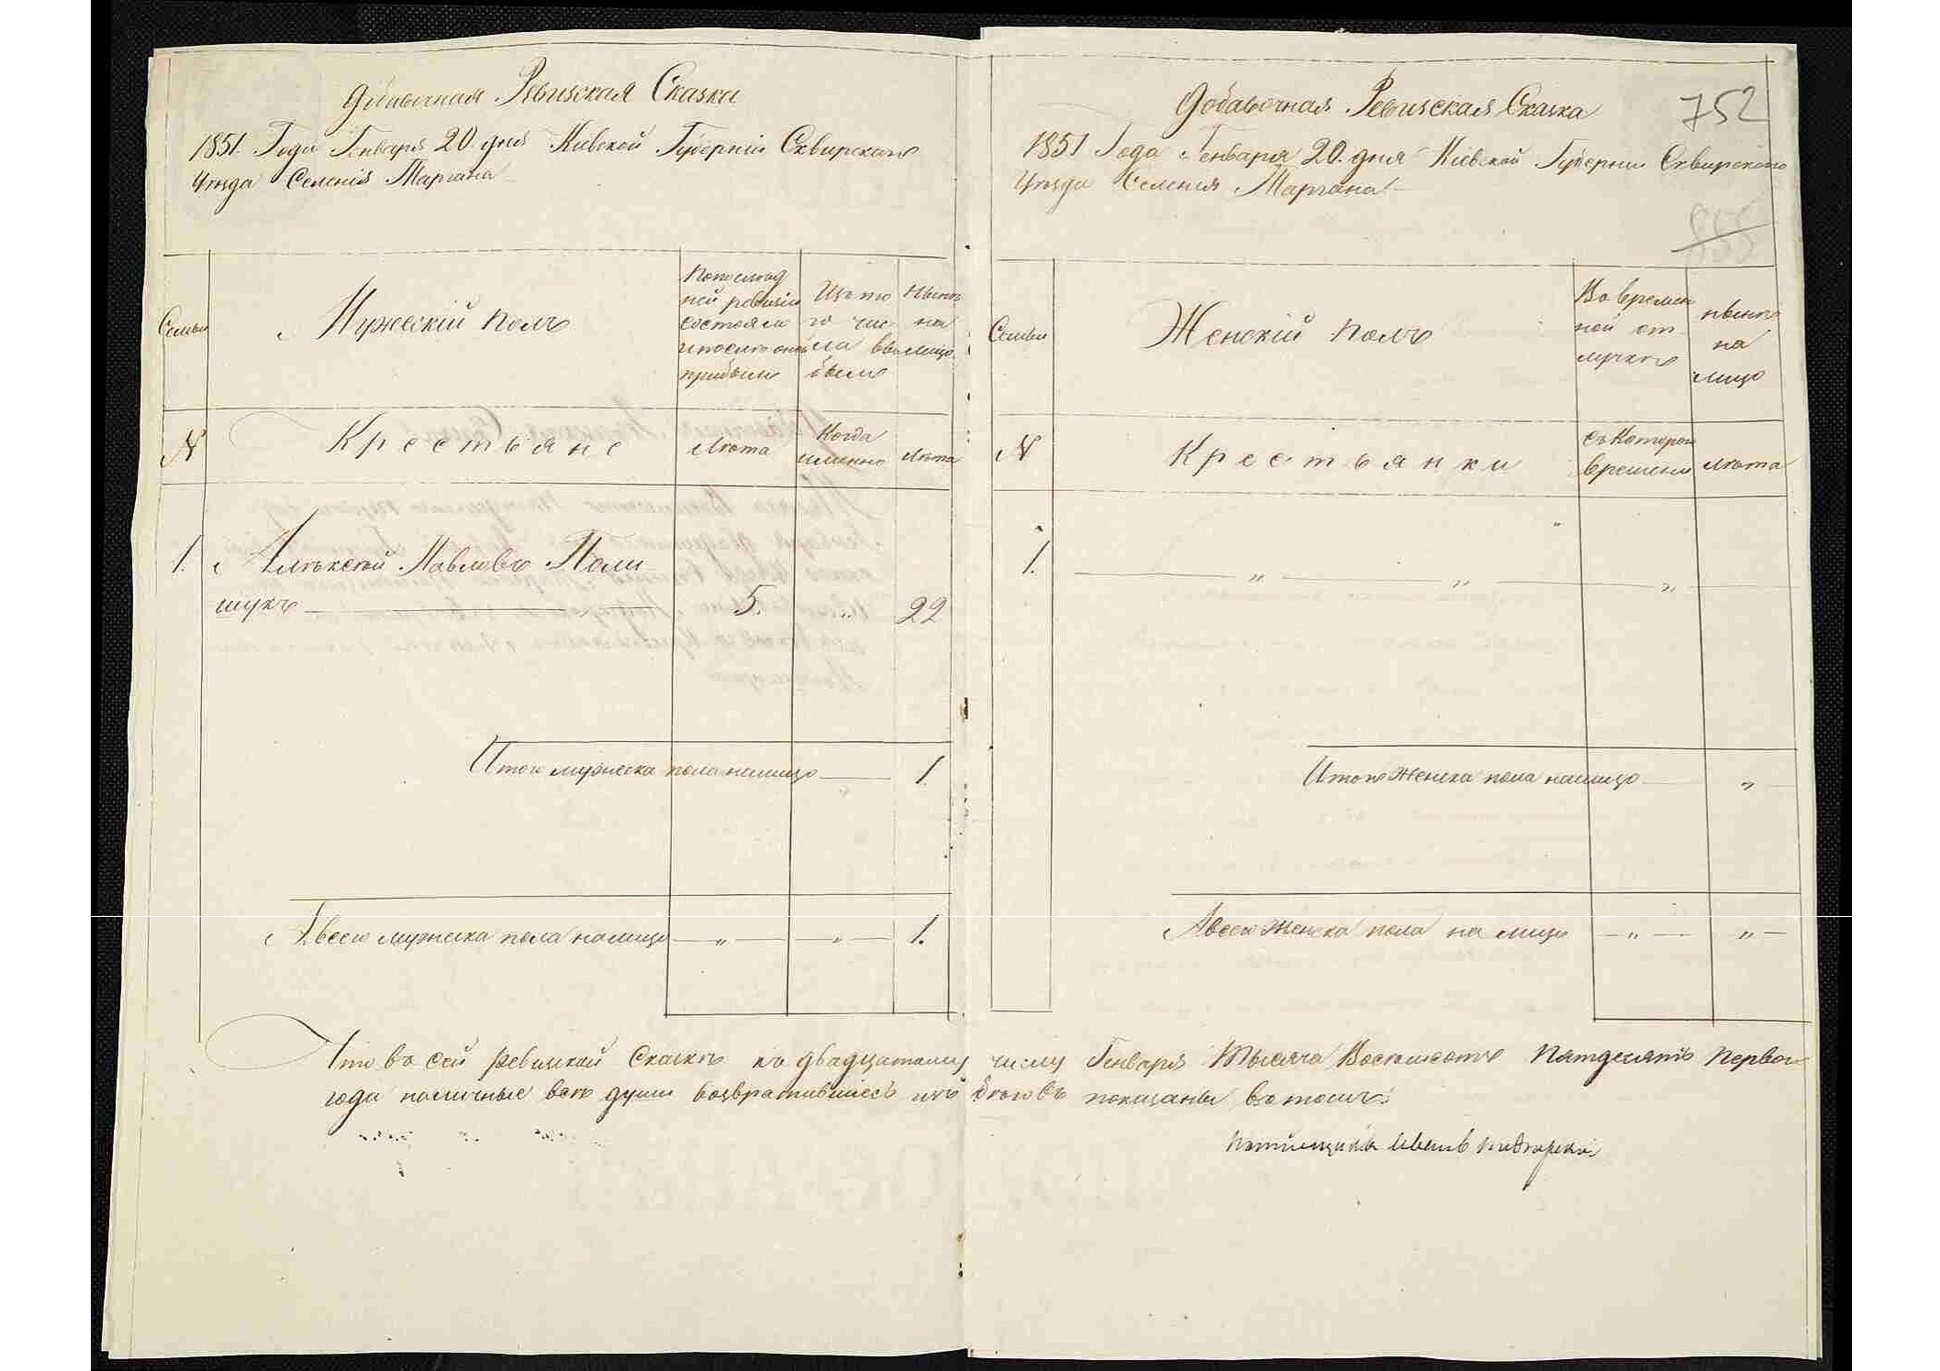 Добавочная Ревизская Сказка
1851. Года Генваря 20. дня Кіевской Губерніи Сквирскаго
Уѣзда Селенія
Семьи
Мужескій полъ
По послѣд
ней ревизіи
состояло
и послѣ оной
прибыло
Изъ то
го чис
ла вы
было
Нынѣ
на
лицо
№
Крестьяне
Лѣта
Когда
именно
Лѣта
1.
Алексѣй Павловъ Поли
щукъ — „ — 5. „ 22
Итого мужеска пола налицо — 1.
А всего мужеска пола налицо — „ — „ — 1.
Добавочная Ревизская Сказка
752
1851 Года Генваря 20. дня Кіевской Губерніи Сквирскаго
Уѣзда Селенія
855
Семьи
Женскій полъ
Во времен
ной от
лучкѣ
нынѣ
на
лицо
№
Крестьянки
съ котораго
времени
лѣта
1. — „ — „ — „
Итого Женска пола налицо — „ —
А всего Женска пола на лицо — „ — „ —
Что въ сей ревизской Сказкѣ къ двадцатому числу Генваря Тысяча Восемьсотъ Пятдесятъ Перваго
года наличные всѣ души возвратившіесь изъ бѣговъ показаны въ томъ:
Помѣщикъ